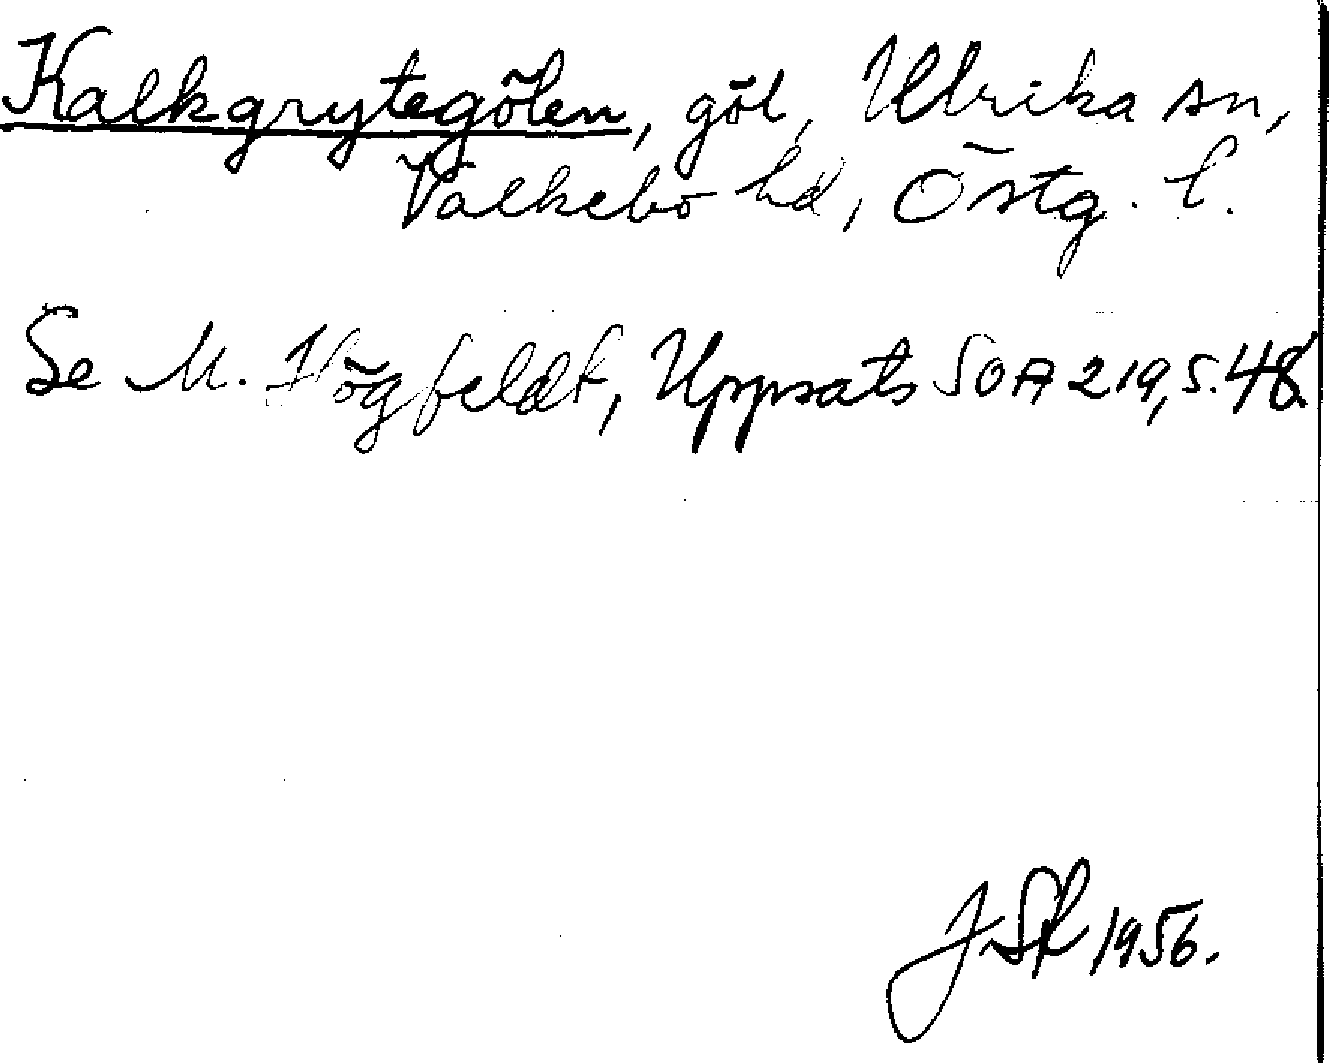 Kalkgrytegölen, göl, Ulrika sn,
Valkebo hd, Östg. l.
Se M. Högfeldt, Uppsats SOA 219, s. 48.
JSR 1956.